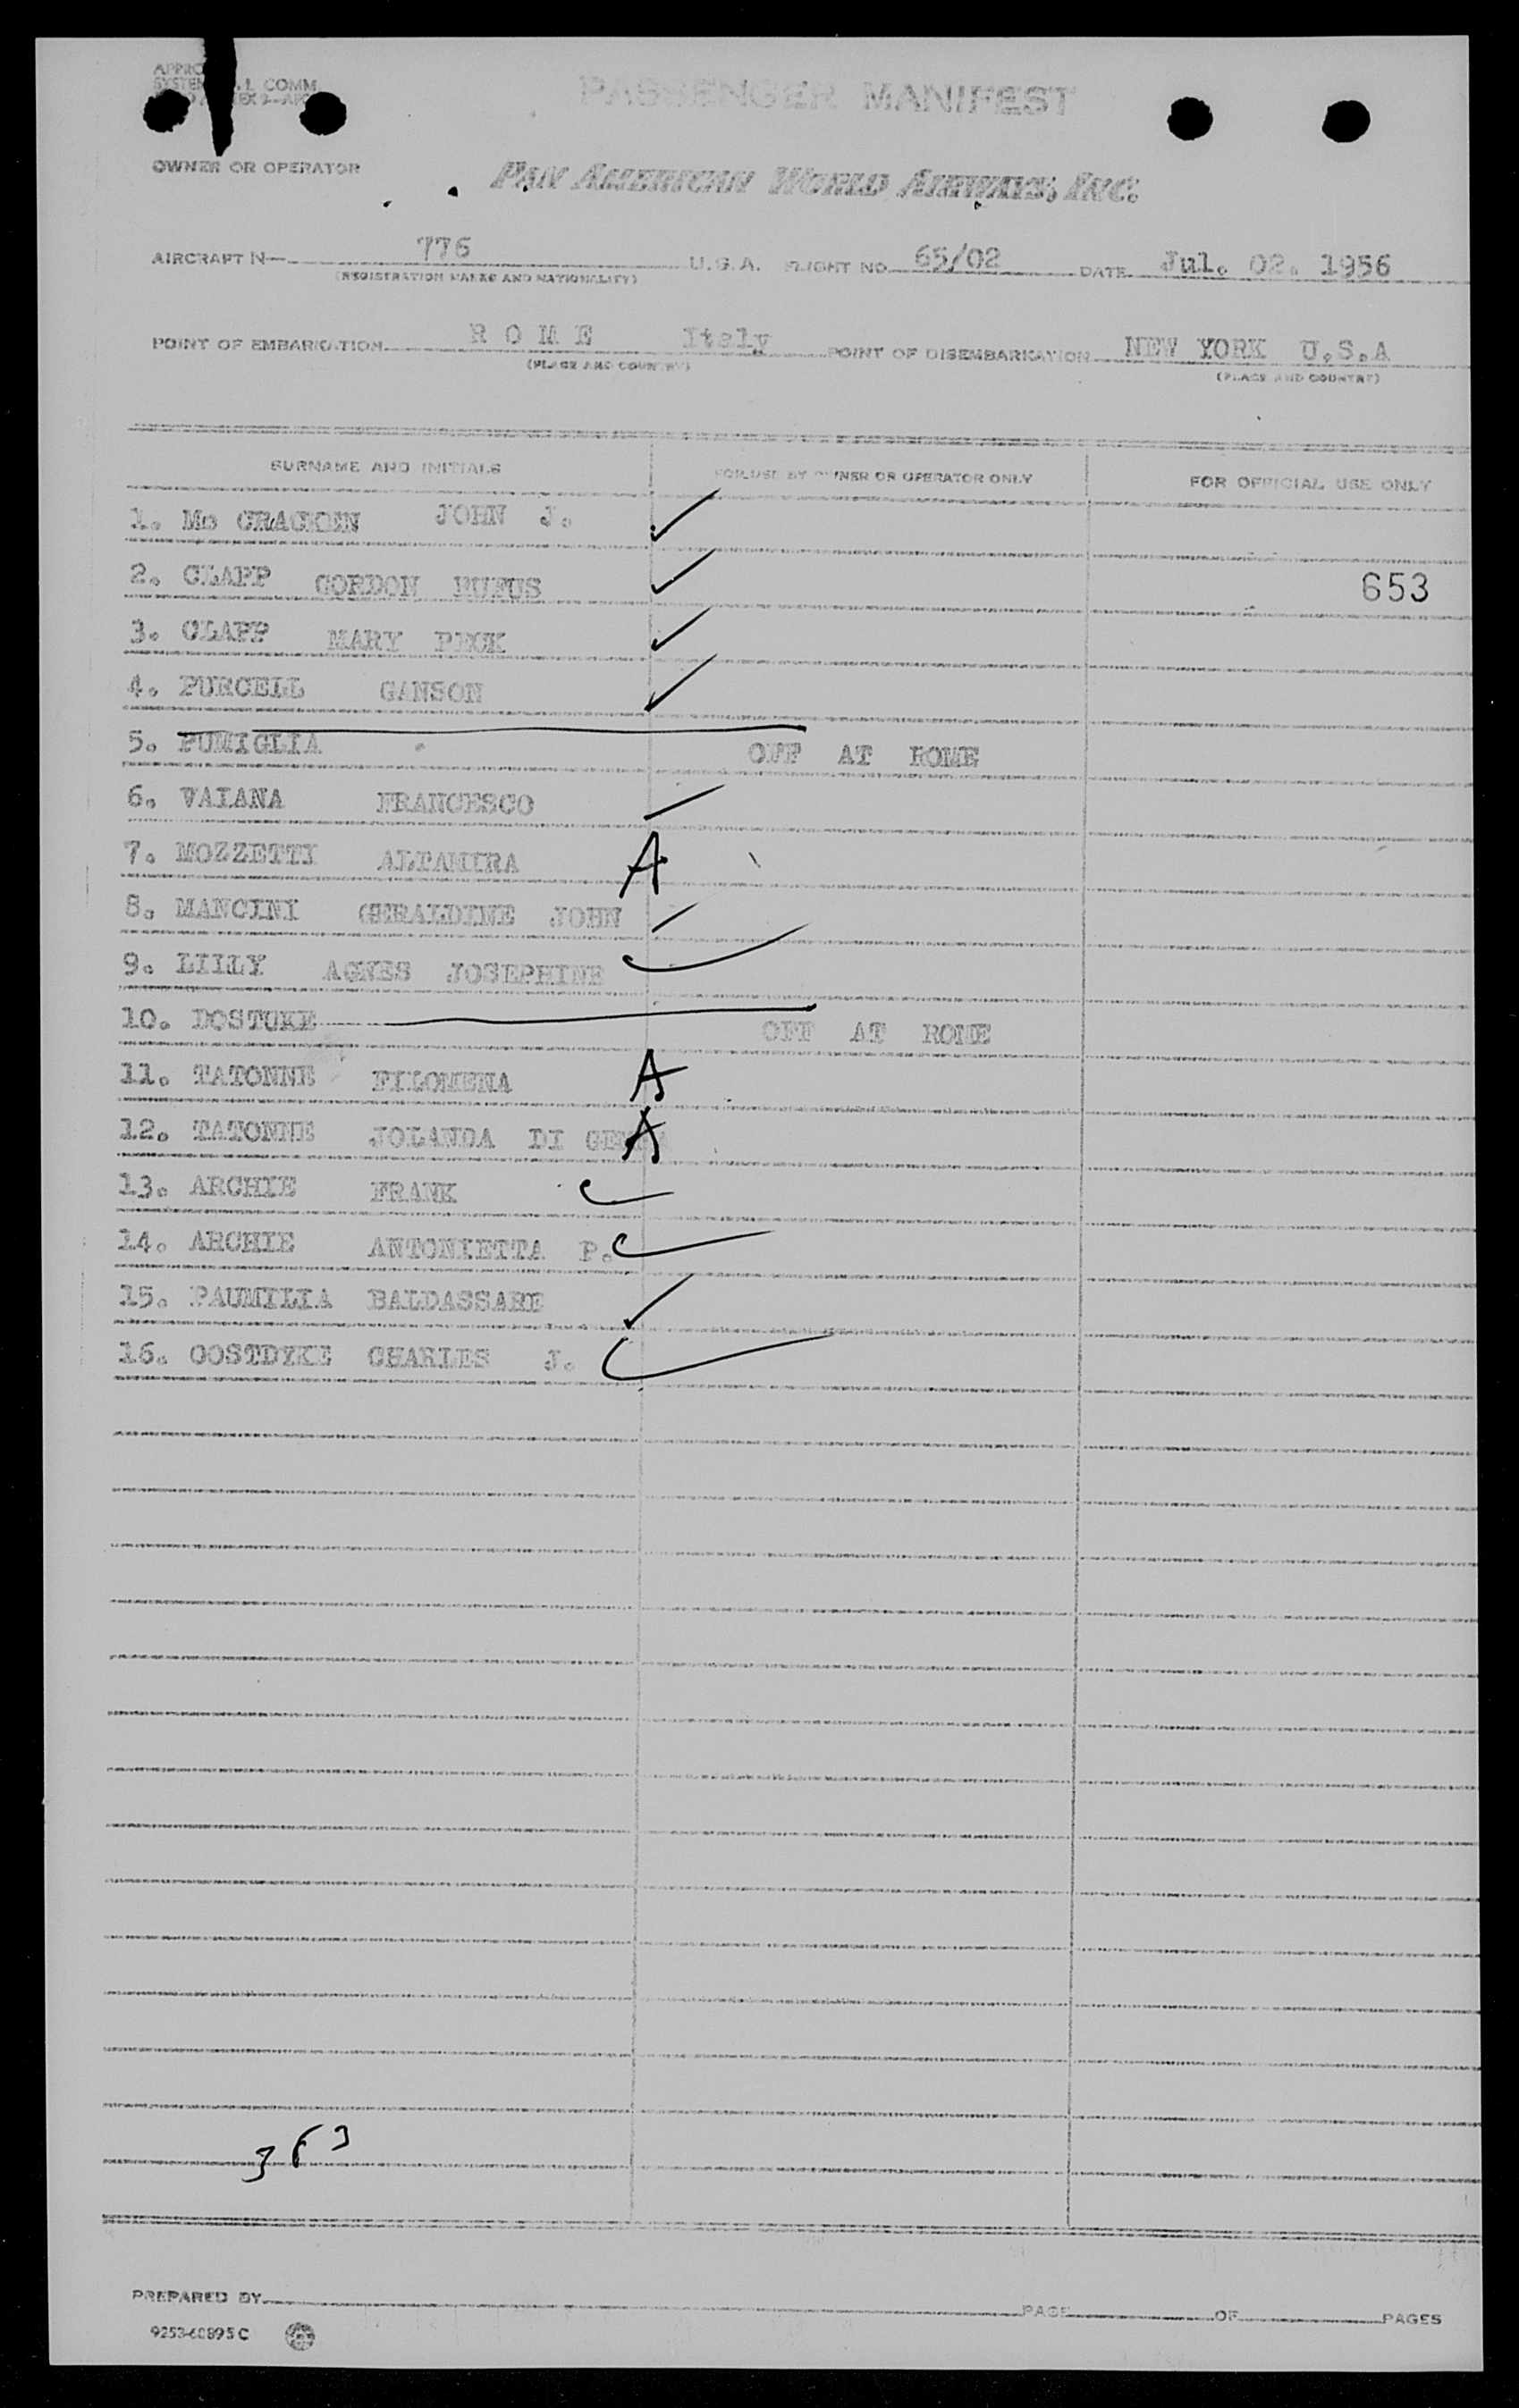 PASSENGER MANIFEST
OWNER OR OPERATOR
PAN AMERICAN WORLD AIRWAYS, INC.
AIRCRAFT N— 776 U.S.A. FLIGHT NO. 65/02 DATE Jul. 02. 1956
(REGISTRATION MARKS AND NATIONALITY)
POINT OF EMBARKATION ROME Italy POINT OF DISEMBARKATION NEW YORK U.S.A
(PLACE AND COUNTRY) (PLACE AND COUNTRY)
SURNAME AND INITIALS FOR USE BY OWNER OR OPERATOR ONLY FOR OFFICIAL USE ONLY
1. Mc CRACKEN JOHN J.
2. CLAPP GORDON RUFUS 653
3. CLAPP MARY PECK
4. PURCELL GANSON
5. PUMIGLIA OFF AT ROME
6. VAIANA FRANCESCO
7. MOZZETTI ALTAMIRA A
8. MANCINI GERALDINE JOHN
9. LILLY AGNES JOSEPHINE
10. DOSTUKE OFF AT ROME
11. TATONNE FILOMENA A
12. TATONNE JOLANDA DI A
13. ARCHIE FRANK
14. ARCHIE ANTONIETTA P.
15. PAUMILIA BALDASSARE
16. OOSTDYKE CHARLES J.
PREPARED BY PAGE OF PAGES
9253-60895C